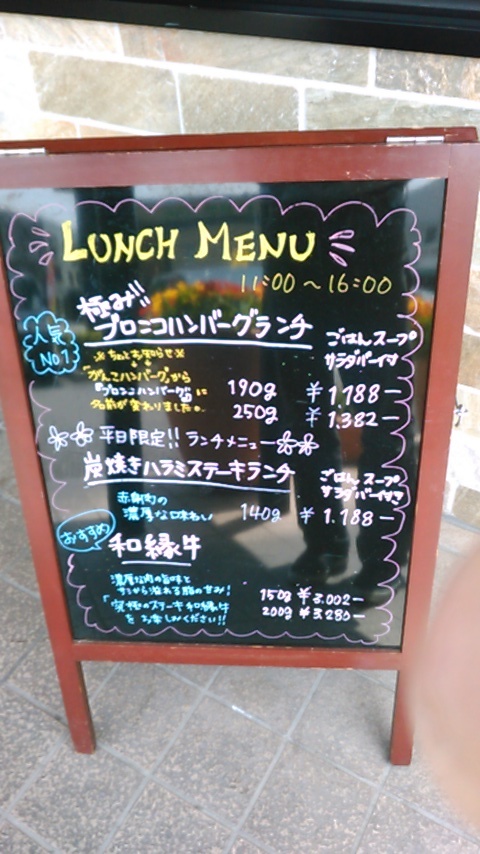 LUNCH MENU
11:00〜16:00
極み!!
人気 No1
プロニコハンバーグランチ
ごはん スープ
サラダバー付
※ちょっとお知らせ※
「がんこハンバーグ」から
『プロンコハンバーグ』に
名前が変わりました。
190g ¥1,188−
250g ¥1,382−
平日限定!! ランチメニュー
炭焼きハラミステーキランチ
ごはん スープ
サラダバー付き
赤身肉の
濃厚な味わい
140g ¥1.188−
おすすめ
和縁牛
濃厚な肉の旨味と
サシから溢れる脂の甘み!
「究極のステーキ和縁牛」
をお楽しみください!!
150g ¥3.002−
200g ¥3,280−